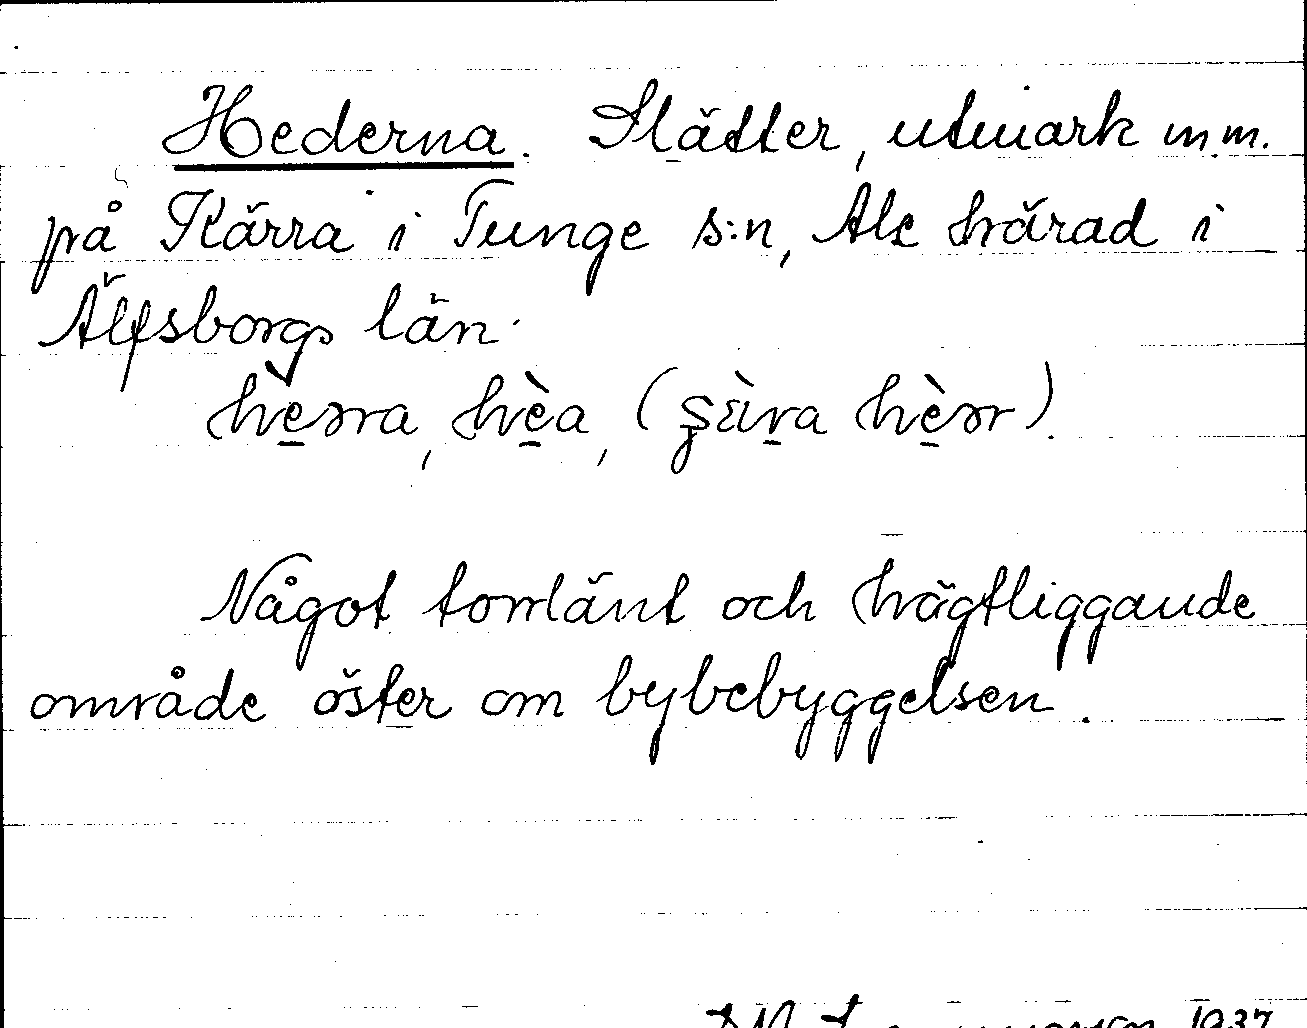 Hederna. Slätter, utmark m.m.
på Kärra i Tunge s:n, Ale härad i
Älfsborgs län.
hè̱rra, hè̱a, (
Något torrlänt och högtliggande
område öster om bybebyggelsen.
1937